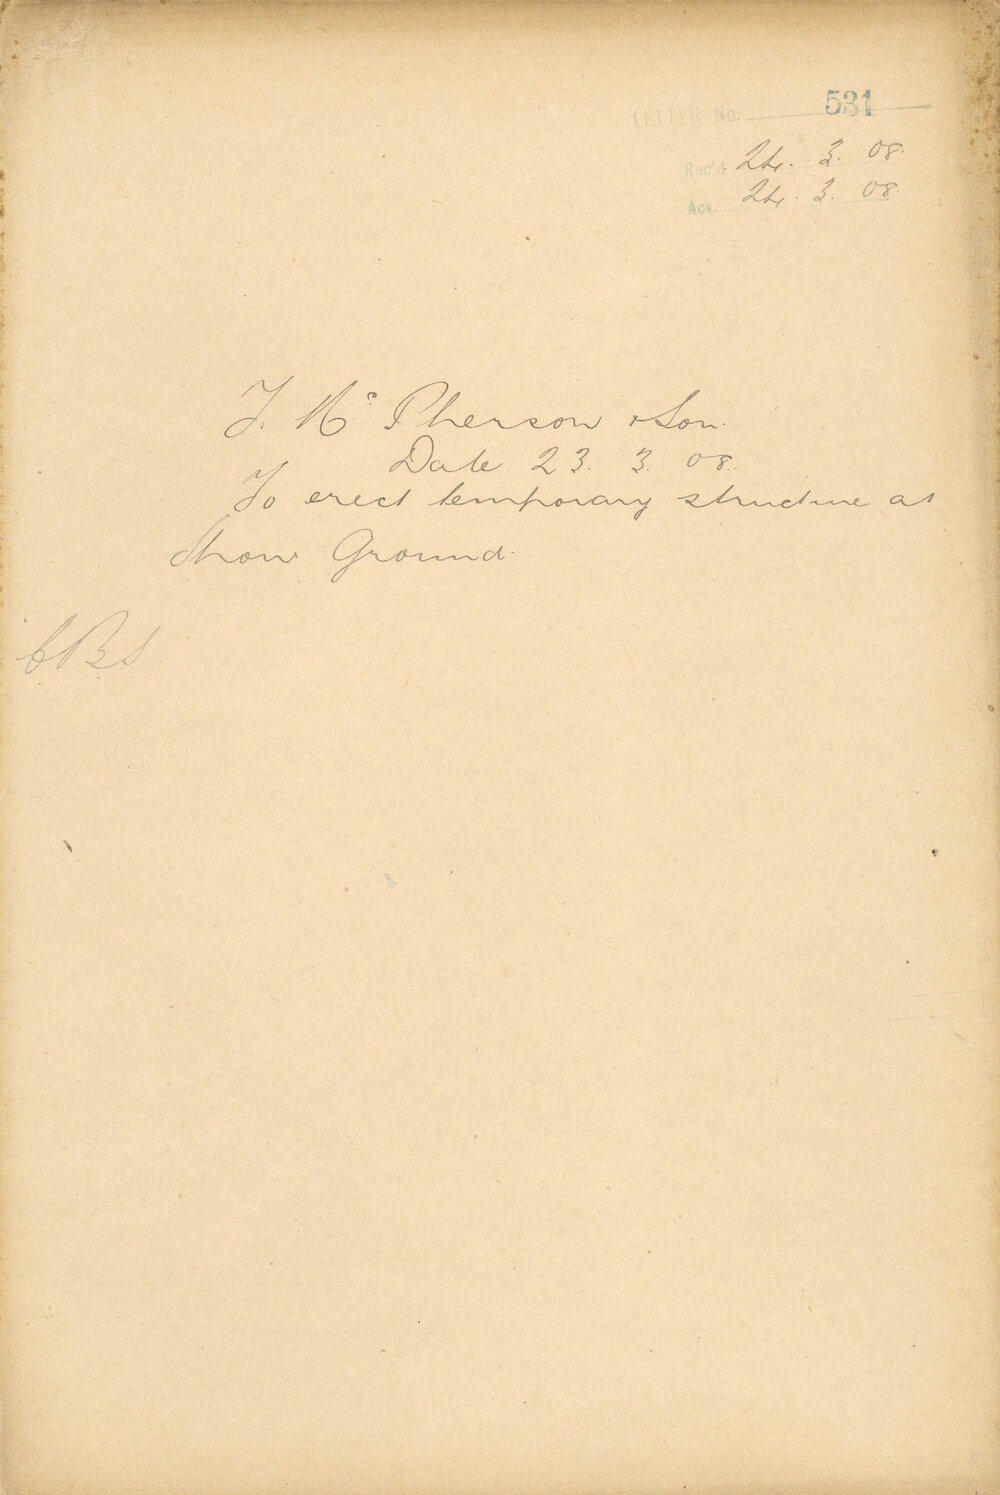 LETTER No. 531
Rec'd 24. 3. 08.
Ack. 24. 3. 08
Mc Pherson & Son.
Date 23. 3. 08.
To erect temporary structure at
Show Ground.